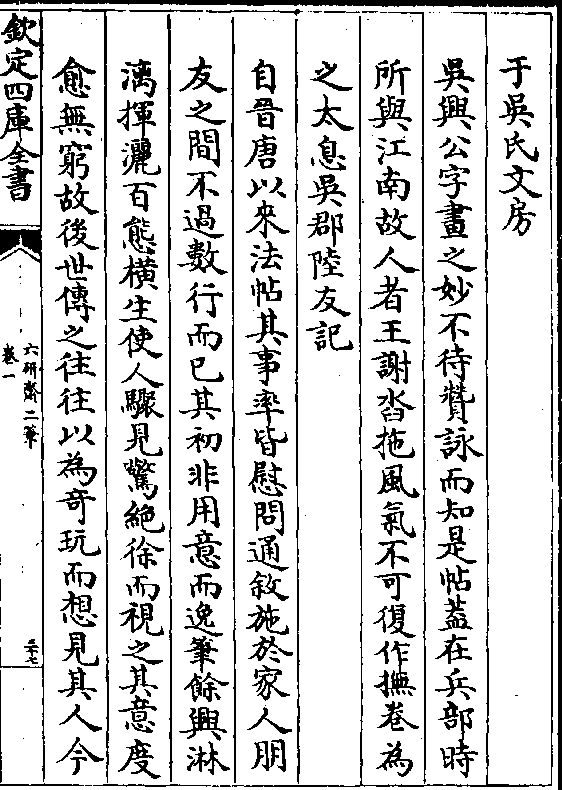 于吳氏文房
吳興公字畫之妙不待贊詠而知是帖葢在兵部時
所與江南故人者王謝沓拖風氣不可復作撫卷為
之太息吳郡陸友記
自晉唐以來法帖其事率皆慰問通敘施於家人朋
友之間不過數行而已其初非用意而逸筆餘興淋
漓揮灑百態横生使人驟見驚絶徐而視之其意度
愈無窮故後世傳之往往以為奇玩而想見其人今
欽定四庫全書
六研齋二筆
卷一
三十七